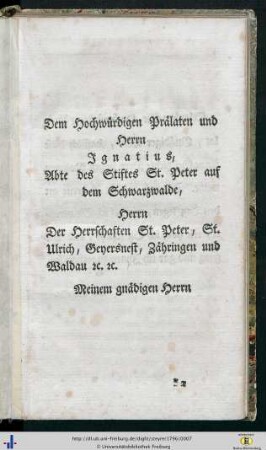 Dem Hochwürdigen Prälaten und
Herrn
Ignatius,
Abte des Stiftes St. Peter auf
dem Schwarzwalde,
Herrn
Der Herrschaften St. Peter, St.
Ulrich, Geyersnest, Zähringen und
Waldau ꝛc. ꝛc.
Meinem gnädigen Herrn
http://dl.ub.uni-freiburg.de/diglit/steyrer1796/0007
© Universitätsbibliothek Freiburg